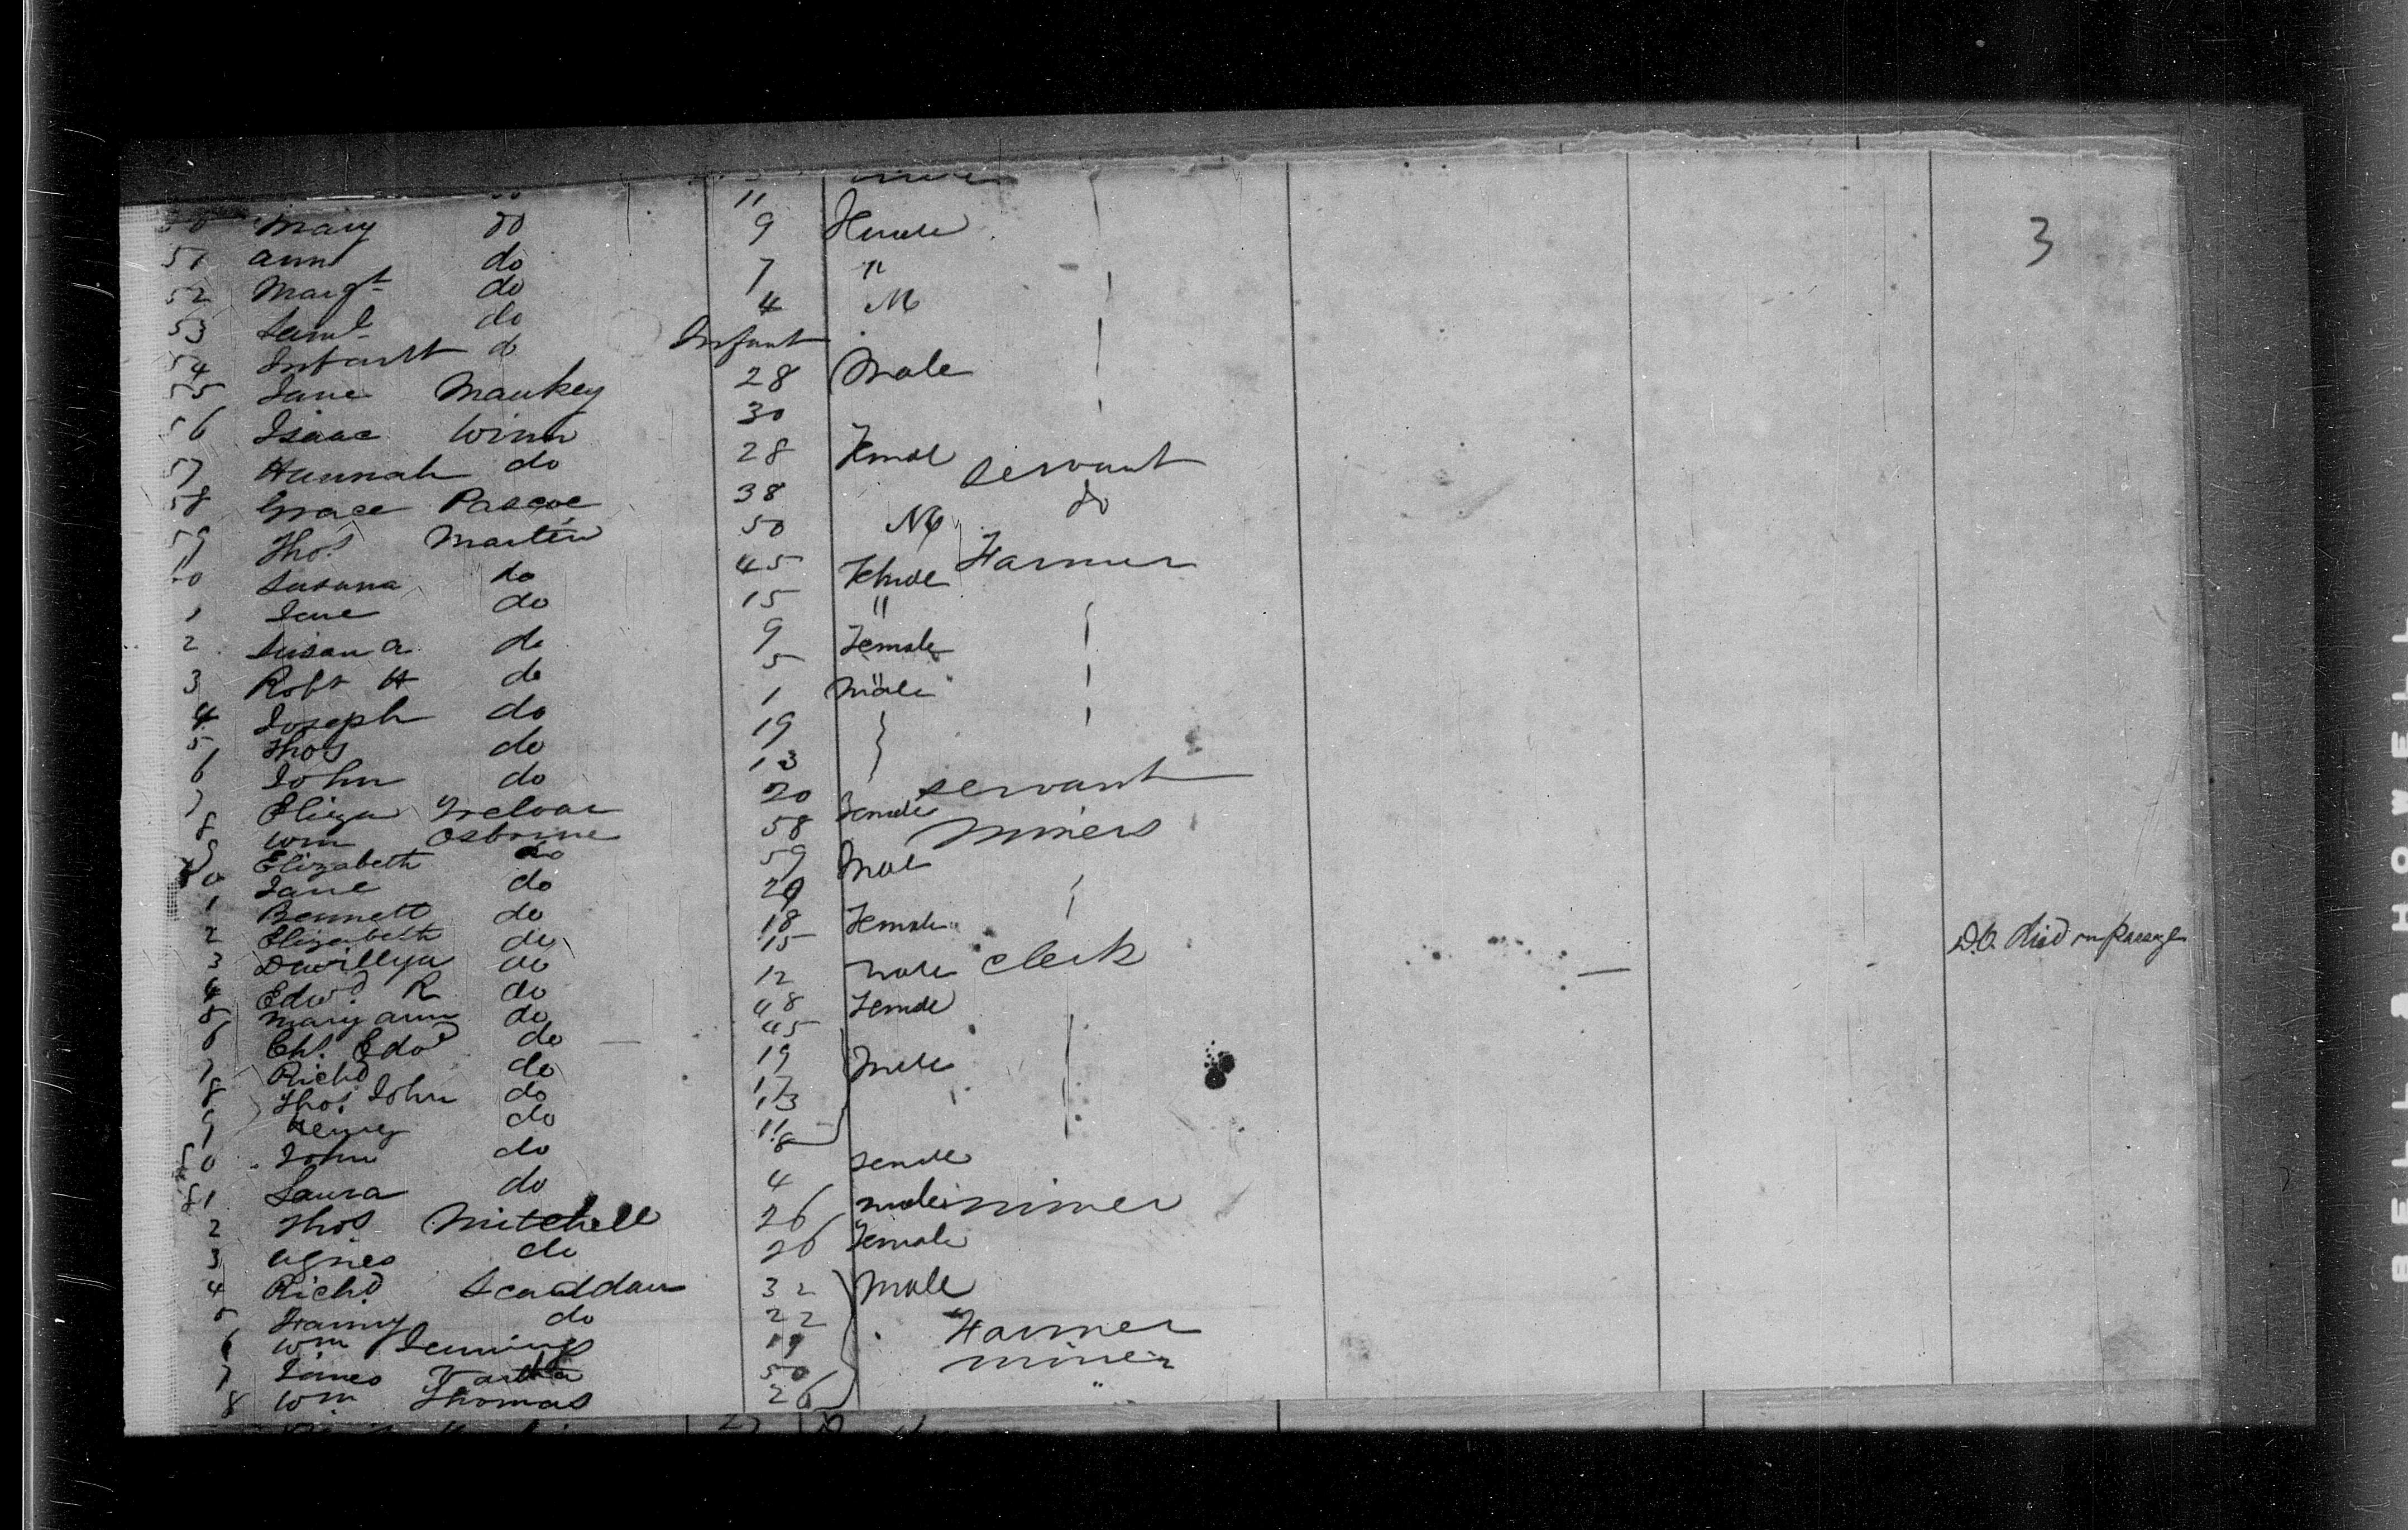 11
50 Mary do 9 Female
3
51 Ann do 7 "
52 Margt do 4 M
53 Saml do Infant
54 Infant do 28 Male
55 Jane Mankey 30
56 Isaac Winn 28 Femal servant
57 Hannah do 38 do
58 Grace Pascoe 50 M
59 Thos Martin 45 Female Farmer
60 Susana do 15 "
1 Jane do 9 Female
2 Susan a do 5 "
3 Robt H do 1 Male
4 Joseph do 19
5 Thos do 13
6 John do 20 servant
7 Eliza Treloar 58 Female Miners
8 Wm Osborne 59 Male
9 Elizabeth do 29
70 Jane do 18 Female
1 Bennett do 15
2 Elizabeth do 12 Male clerk
3 do 48 Female
4 Edwd R do 45
5 Mary Ann do 19 Male
6 Chs. Edwd do 17
D.O. died on passage
7 Richd do 13
8 Thos John do 11
9 Henry do 8
80 John do 4 Female
81 Laura do 26 male miner
2 Thos Mitchell 26 Female
3 Agnes do 32 Male
4 Richd Scaddan 22
5 Fanny do 19 Farmer
6 Wm Jennings 50 miner
7 James 26 "
8 Wm Thomas
BELL & HOWELL